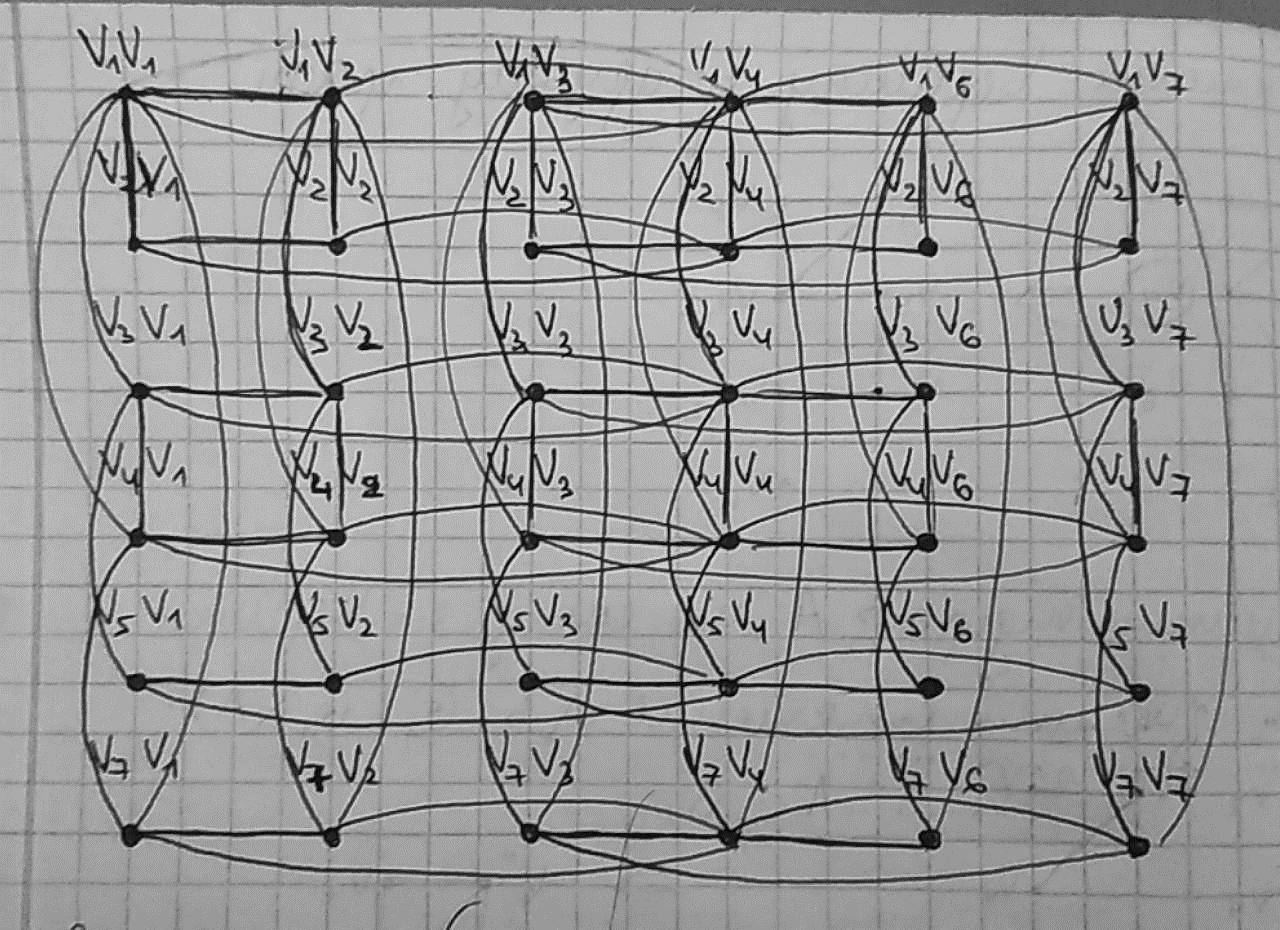 V₁V₁ V₁V₂ V₁V₃ V₁V₄ V₁V₆ V₁V₇
V₂V₁ V₂V₂ V₂V₃ V₂V₄ V₂V₆ V₂V₇
V₃V₁ V₃V₂ V₃V₃ V₃V₄ V₃V₆ V₃V₇
V₄V₁ V₄V₂ V₄V₃ V₄V₄ V₄V₆ V₄V₇
V₅V₁ V₅V₂ V₅V₃ V₅V₄ V₅V₆ V₅V₇
V₇V₁ V₇V₂ V₇V₃ V₇V₄ V₇V₆ V₇V₇